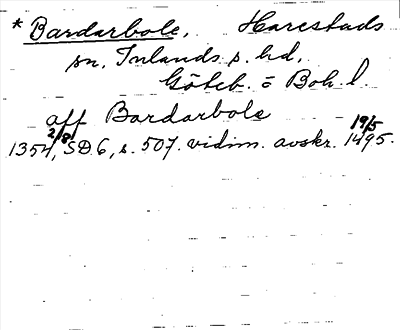 * Bardarbole, Harestads
sn, Inlands s. hd,
Göteb. o Boh l.
aff Bardarbole
1354 2/8, SD 6, s. 507. vidim. avskr. 19/5 1495.